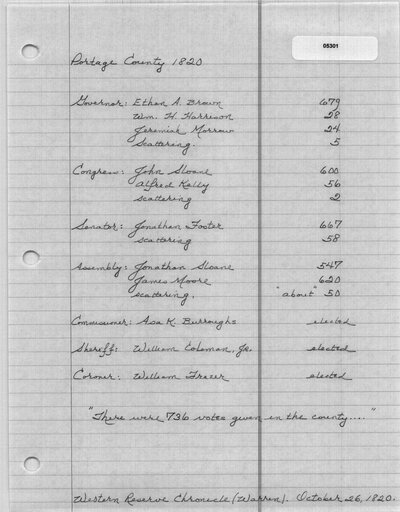 05301
Portage County 1820
Governor: Ethan A. Brown 679
Wm. H. Harrison 28
Jeremiah Morrow 24
Scattering. 5
Congress: John Sloane 600
Alfred Kelly 56
scattering 2
Senator: Jonathan Foster 667
scattering 58
Assembly: Jonathan Sloane 547
James Moore 620
scattering. "about" 50
Commissioner: Asa K. Burroughs elected
Sheriff: William Coleman, Jr. elected
Coroner: William Frazer elected
"There were 736 votes given in the county...."
Western Reserve Chronicle (Warren). October 26, 1820.